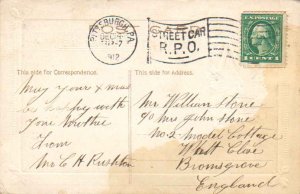 PITTSBURGH, PA.
DEC
1912
STREET CAR
R.P.O.
U.S. POSTAGE
1 CENT 1
This side for Correspondence.
This side for Address.
May your Xmas
be happy with
your
From
Mr C H Rushton
Mr William Stone
℅ Mrs John Stone
No 2 Model Cottage
West Close
Bromsgrove
England